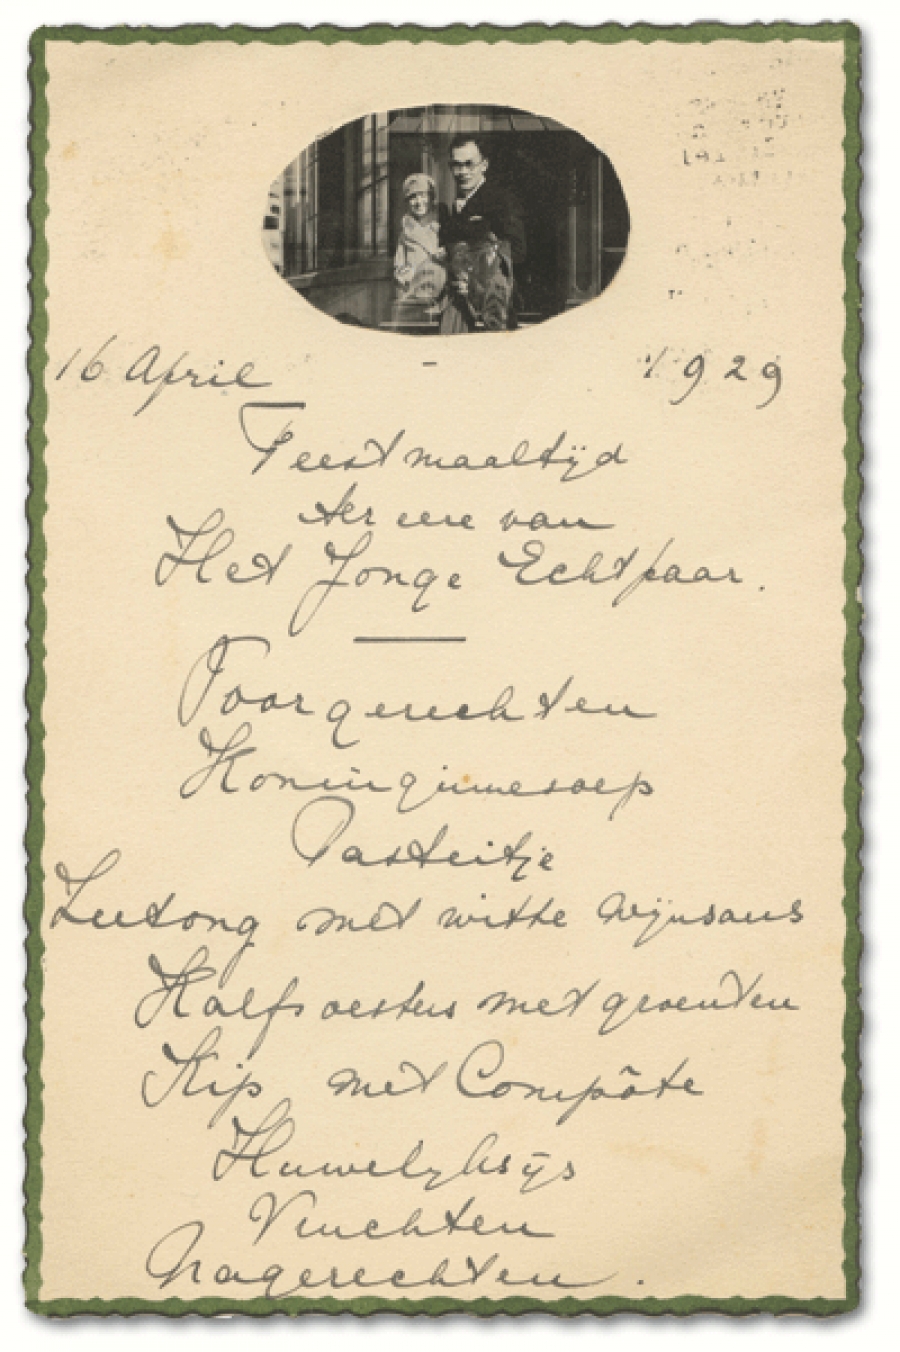 16 April - 1929
Feestmaaltijd
ter eere van
Het Jonge Echtpaar.
Voorgerechten
Koninginnesoep
Pasteitje
Zeetong met witte wijnsaus
Kalfsoesters met groenten
Kip met Compôte
Huwelyksijs
Vruchten
Nagerechten.